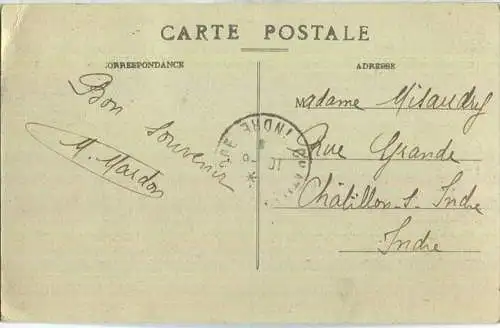 CARTE POSTALE
CORRESPONDANCE
Bon Souvenir
M. Mardon
ADRESSE
Madame Misaudry
Rue Grande
Châtillon-s-Indre
Indre
INDRE